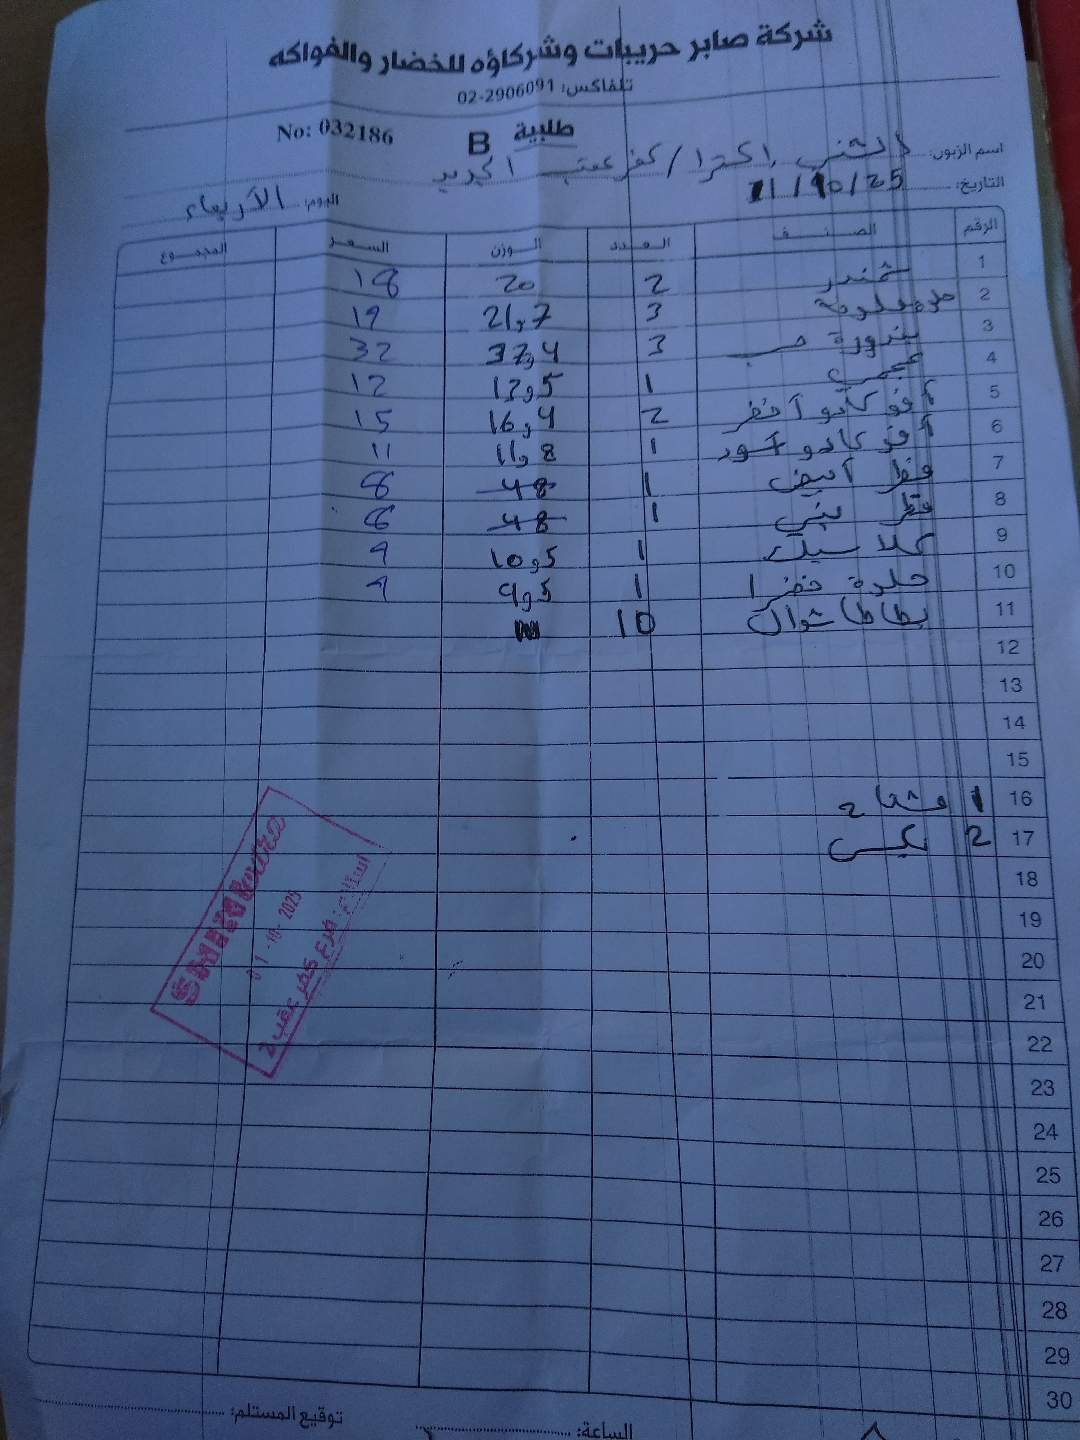 شركة صابر حريبات وشركاؤه للخضار والفواكه
تلفاكس: 02-2906091
طلبية B No: 032186
اسم الزبون: الشني اكسترا / كفر عقب الجديد
التاريخ: 1/10/25 اليوم: الأربعاء
الرقم الصنف العدد الوزن السعر المجموع
1 شمندر 2 20 18
2 3 21,7 19
3 بندورة حب 3 37,4 32
4 1 13,5 12
5 أفوكادو أخضر 2 16,4 15
6 أفوكادو أسود 1 11,8 11
7 فطر أبيض 1 48 8
8 فطر بني 1 48 8
9 1 10,5 9
10 حلوة خضرا 1 9,5 9
11 بطاطا شوال 10
12
13
14
15
16 1 مشتاح
17 2 بكس
18
19
20
21
22
23
24
25
26
27
28
29
30
SHINI Extra
01-10-2025
استلام: فرع كفر عقب 2
توقيع المستلم: الساعة: